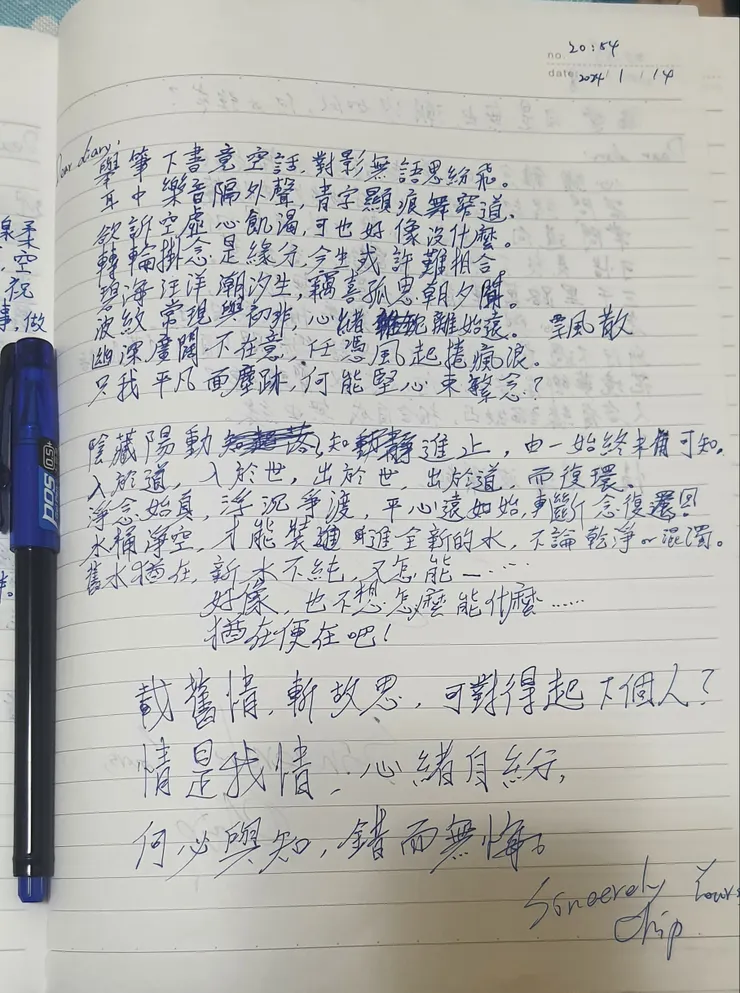 no. 20:54
date 2024 / 1 / 14
Dear diary,
舉筆下書竟空話,對影無語思紛飛。
耳中樂音隔外聲,青字顯痕舞窄道。
欲訴空虛心飢渴,可也好像沒什麼。
轉輪掛念是緣分,今生或許難相合。
碧海汪洋潮汐生,竊喜孤思朝夕開。
波紋常現與初非,心緒離始遠。飄散
幽深廣闊不在意,任憑風起捲瘋浪。
只我平凡面塵跡,何能堅心束繁念?
陰藏陽動,知靜進止,由一始終未有可知。
入於道,入於世,出於世,出於道,而復環。
淨念始真,浮沉爭渡,平心遠如始,斬斷念復還回
水桶淨空,才能裝進全新的水,不論乾淨or混濁。
舊水猶在,新水不純,又怎能⋯⋯
好像,也不想怎麼能什麼⋯⋯
猶在便在吧!
載舊情,斬故思,可對得起下個人?
情是我情,心緒自紛,
何必與知,錯而無悔。
Sincerely Yours
Chip
柔
空
祝
事,做
SDI